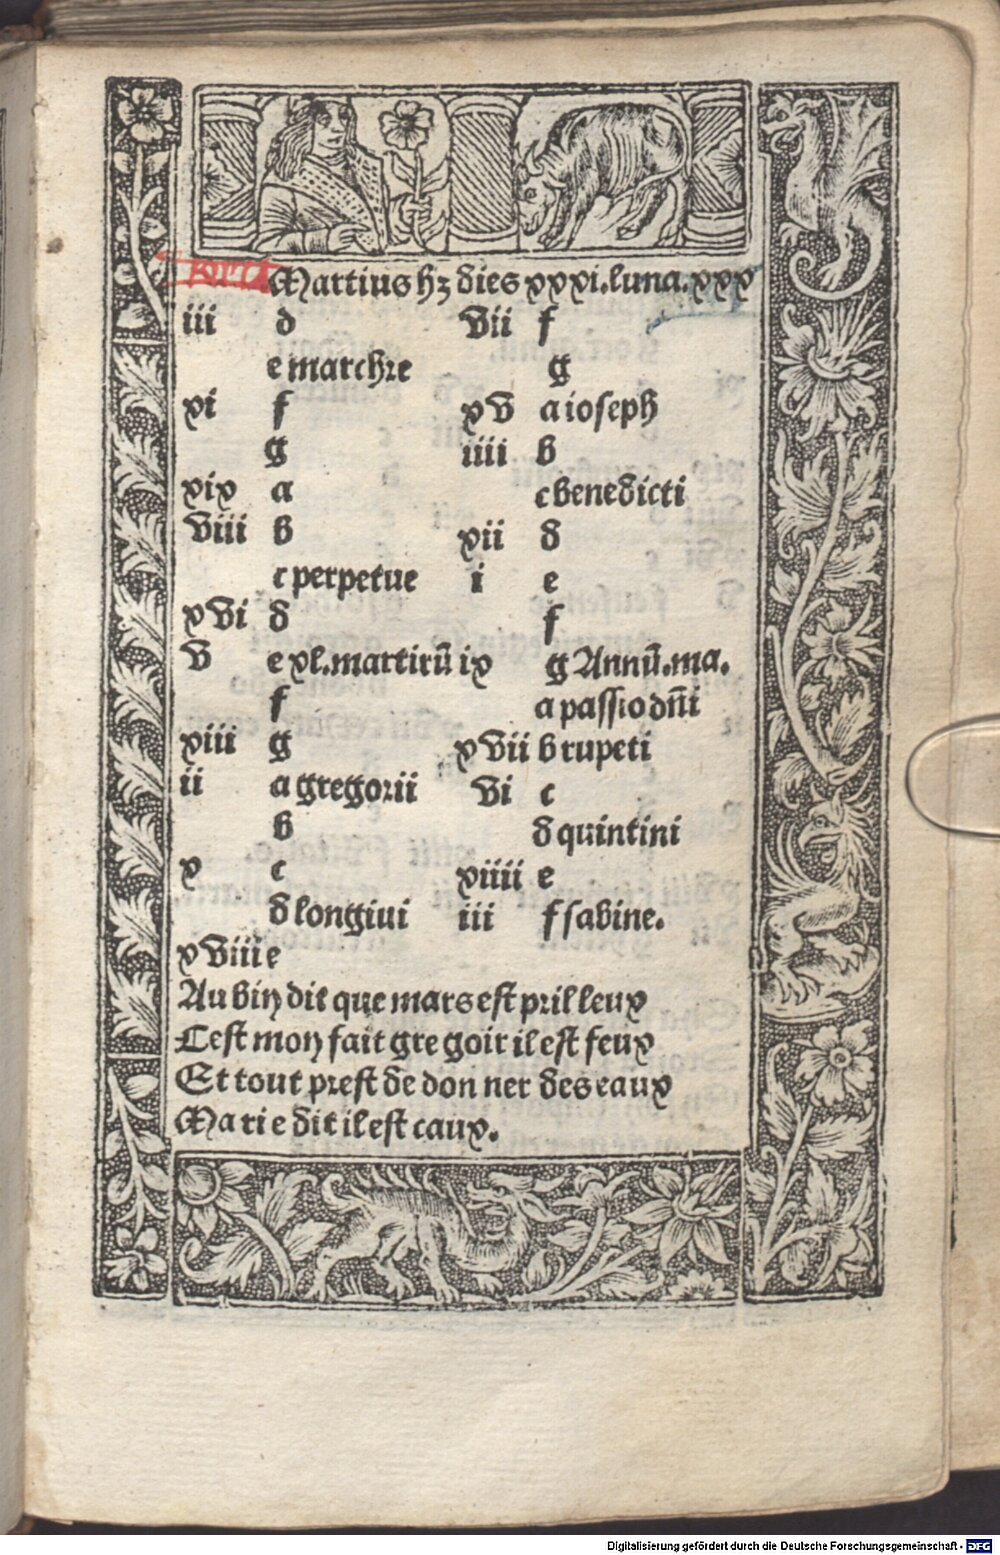 Martius hꝫ dies xxxi. luna. xxx
iii d
e marchre
xi f
g
xix a
viii b
c perpetue
xvi d
v e xl. martirū
f
xiii g
ii a gregorii
b
x c
d longiui
xviii e
vii f
g
xv a ioseph
iiii b
c benedicti
xii d
i e
f
ix g Annū. ma.
a passio dn̄i
xvii b rupeti
vi c
d quintini
xiiii e
iii f sabine.
Au bin dit que mars est pril leux
Cest mon fait gre goir il est feux
Et tout prest de don ner des eaux
Marie dit il est caux.
Digitalisierung gefördert durch die Deutsche Forschungsgemeinschaft - DFG